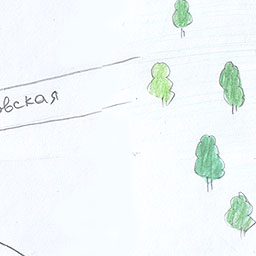 вская